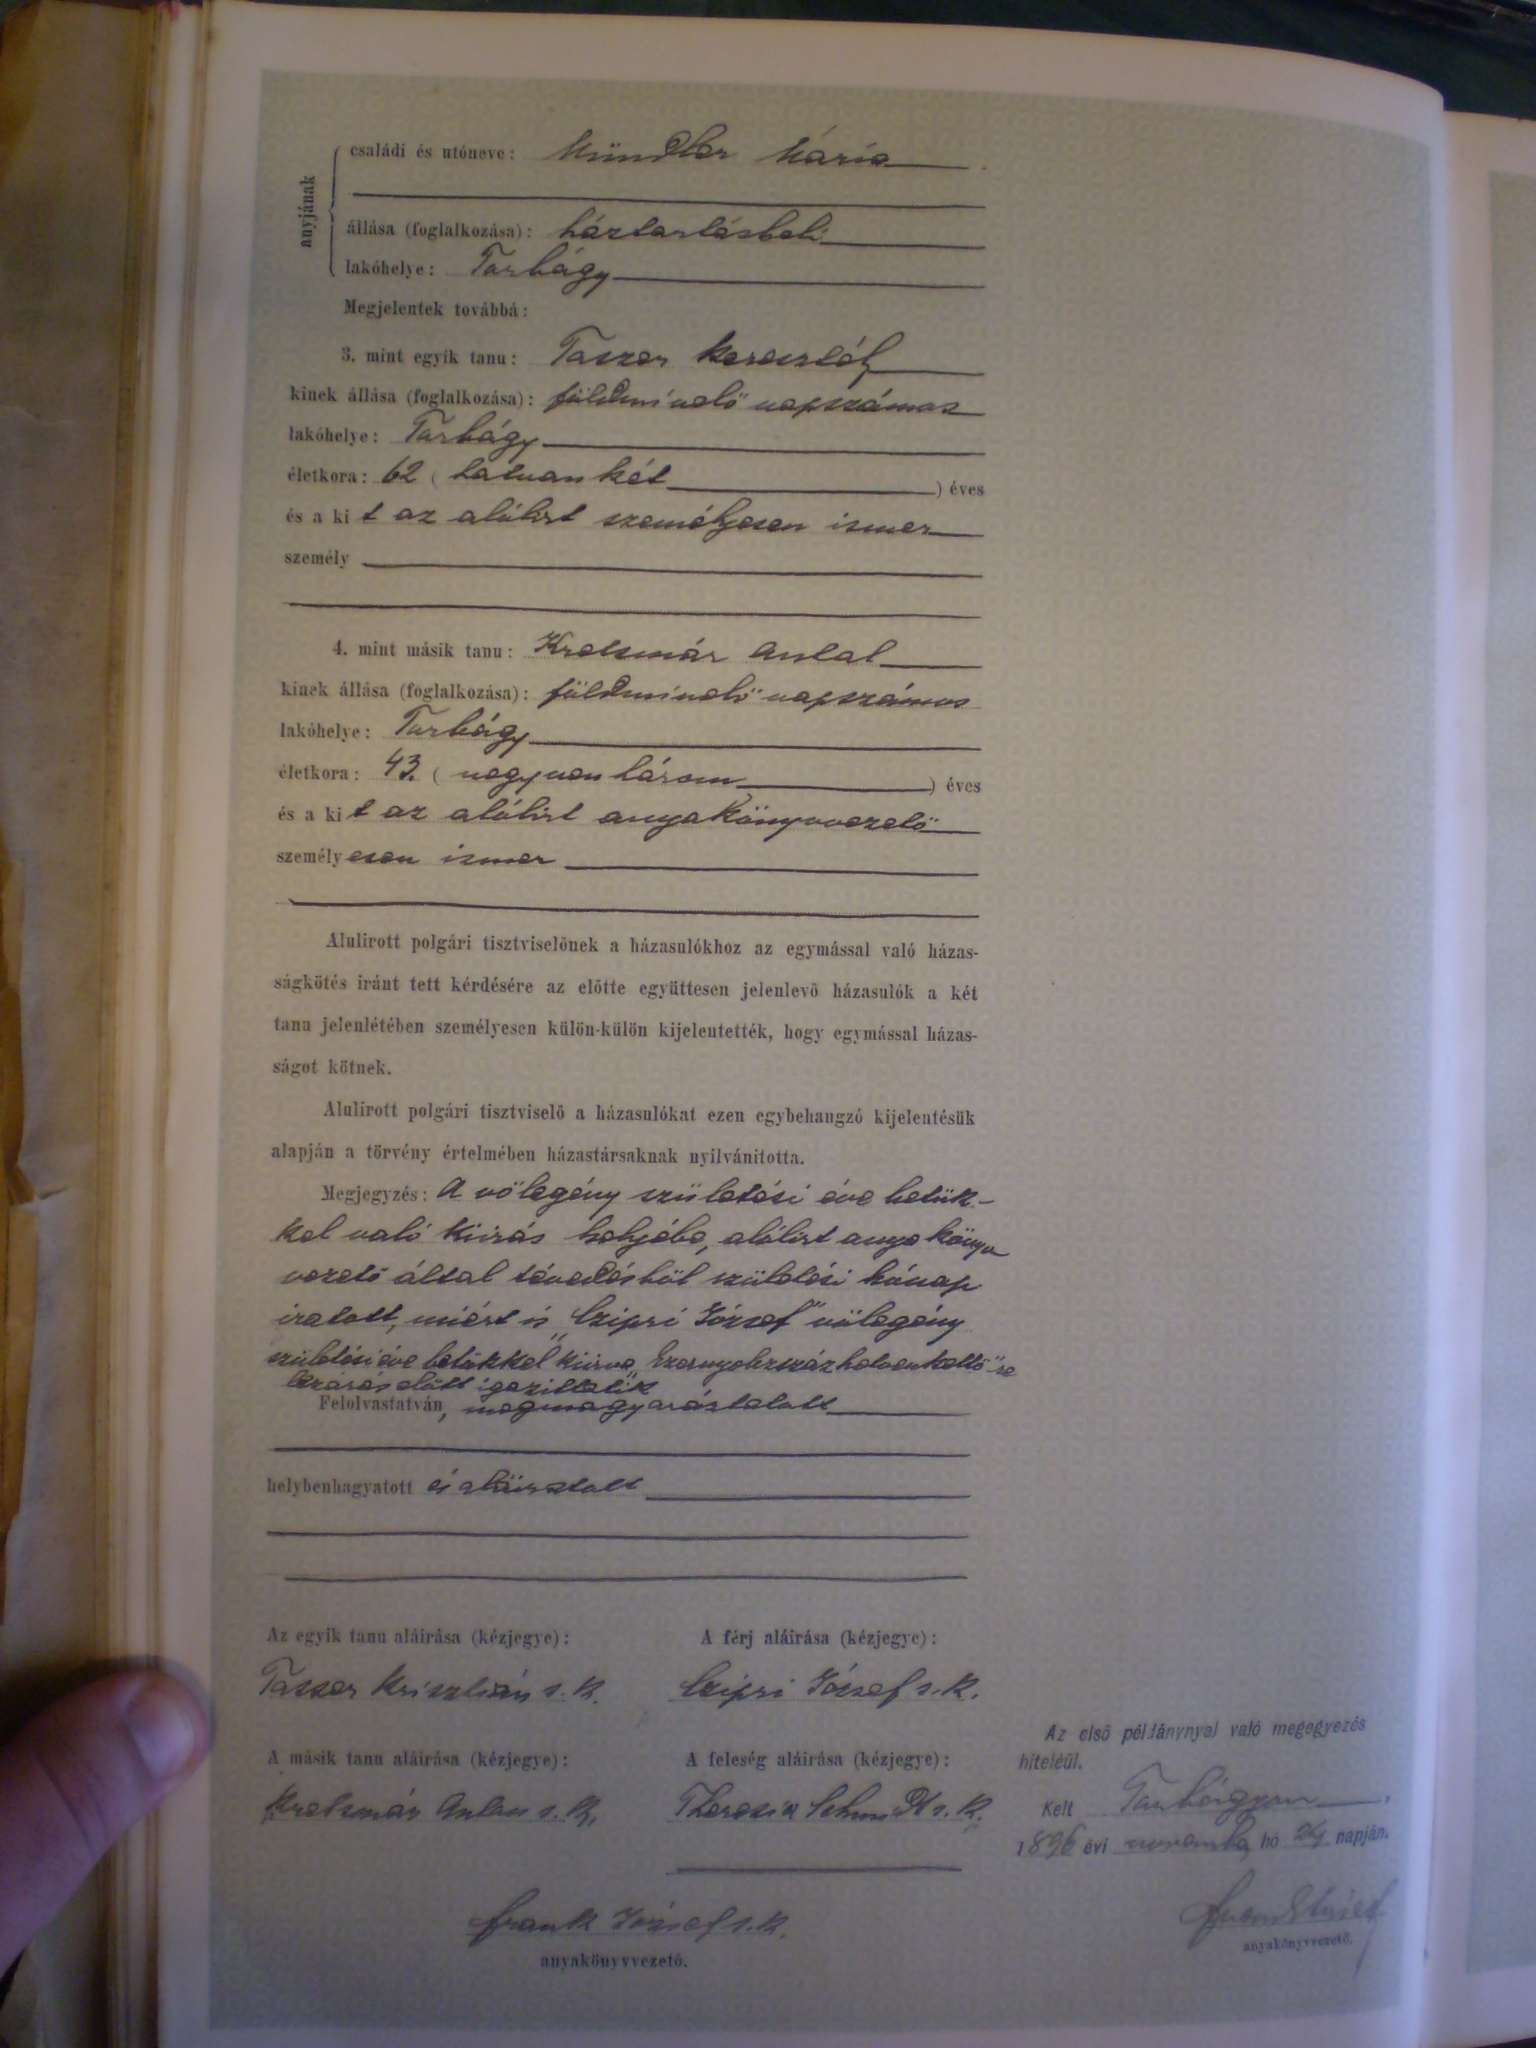 anyjának
családi és utóneve: Mündler Mária
állása (foglalkozása): háztartásbeli
lakóhelye: Torbágy
Megjelentek továbbá:
3. mint egyik tanu: Taszer Keresztély
kinek állása (foglalkozása): földmívelő napszámos
lakóhelye: Torbágy
életkora: 62 (hatvan két) éves
és a kit az alólirt személyesen ismer
személy
4. mint másik tanu: Kretsmár Antal
kinek állása (foglalkozása): földmívelő napszámos
lakóhelye: Torbágy
életkora: 43. (negyven három) éves
és a kit az alólirt anyakönyvvezető
személyesen ismer
Alulirott polgári tisztviselőnek a házasulókhoz az egymással való házas-
ságkötés iránt tett kérdésére az előtte együttesen jelenlevő házasulók a két
tanu jelenlétében személyesen külön-külön kijelentették, hogy egymással házas-
ságot kötnek.
Alulirott polgári tisztviselő a házasulókat ezen egybehangzó kijelentésük
alapján a törvény értelmében házastársaknak nyilvánitotta.
Megjegyzés: A vőlegény születési éve betük-
kel való kiirás helyébe, alólirt anyakönyv
vezető által tévedésből születési hónap
iratott, miért is "Czipri József" vőlegény
születési éve betükkel kiirva "Ezernyolczszázhetvenkettő"re
lezárás előtt igazittatik
Felolvastatván, megmagyaráztatott
helybenhagyatott és aláiratott
Az egyik tanu aláirása (kézjegye):
A férj aláirása (kézjegye):
Taszer Krisztián s. k.
Czipri József s. k.
A másik tanu aláirása (kézjegye):
A feleség aláirása (kézjegye):
Kretsmár Anton s. k.
Theresia Schmidt s. k.
Frank József s. k.
anyakönyvvezető.
Az első példánynyal való megegyezés
hiteléül.
Kelt Torbágyon,
1896 évi november hó 24 napján.
anyakönyvvezető.